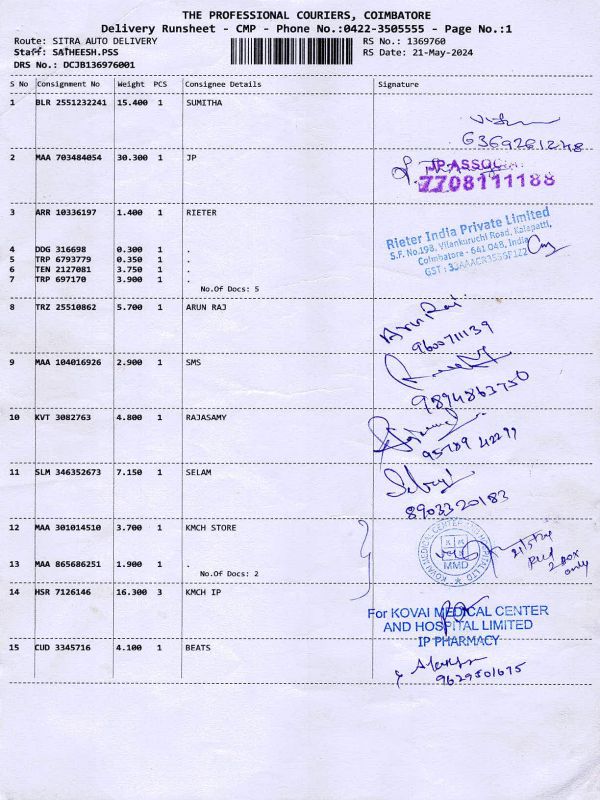 THE PROFESSIONAL COURIERS, COIMBATORE
Delivery Runsheet - CMP - Phone No.:0422-3505555 - Page No.:1
Route: SITRA AUTO DELIVERY RS No.: 1369760
Staff: SATHEESH.PSS RS Date: 21-May-2024
DRS No.: DCJB136976001
S No Consignment No Weight PCS Consignee Details Signature
1 BLR 2551232241 15.400 1 SUMITHA
6369261248
2 MAA 703484054 30.300 1 JP
JP ASSOCIA
7708111188
3 ARR 10336197 1.400 1 RIETER
Rieter India Private Limited
S.F. No.198, Vilankuruchi Road, Kalapatti,
Coimbatore - 641 048, India
GST :
4 DDG 316698 0.300 1 .
5 TRP 6793779 0.350 1 .
6 TEN 2127081 3.750 1 .
7 TRP 697170 3.900 1 .
No.Of Docs: 5
8 TRZ 25510862 5.700 1 ARUN RAJ
Arun Raj
9600711139
9 MAA 104016926 2.900 1 SMS
9894863750
10 KVT 3082763 4.800 1 RAJASAMY
95789 42299
11 SLM 346352673 7.150 1 SELAM
8903320183
12 MAA 301014510 3.700 1 KMCH STORE
KOVAI MEDICAL CENTER
MMD
21/5/24
2 BOX
only
13 MAA 865686251 1.900 1 .
No.Of Docs: 2
14 HSR 7126146 16.300 3 KMCH IP
For KOVAI MEDICAL CENTER
AND HOSPITAL LIMITED
IP PHARMACY
15 CUD 3345716 4.100 1 BEATS
9629501675